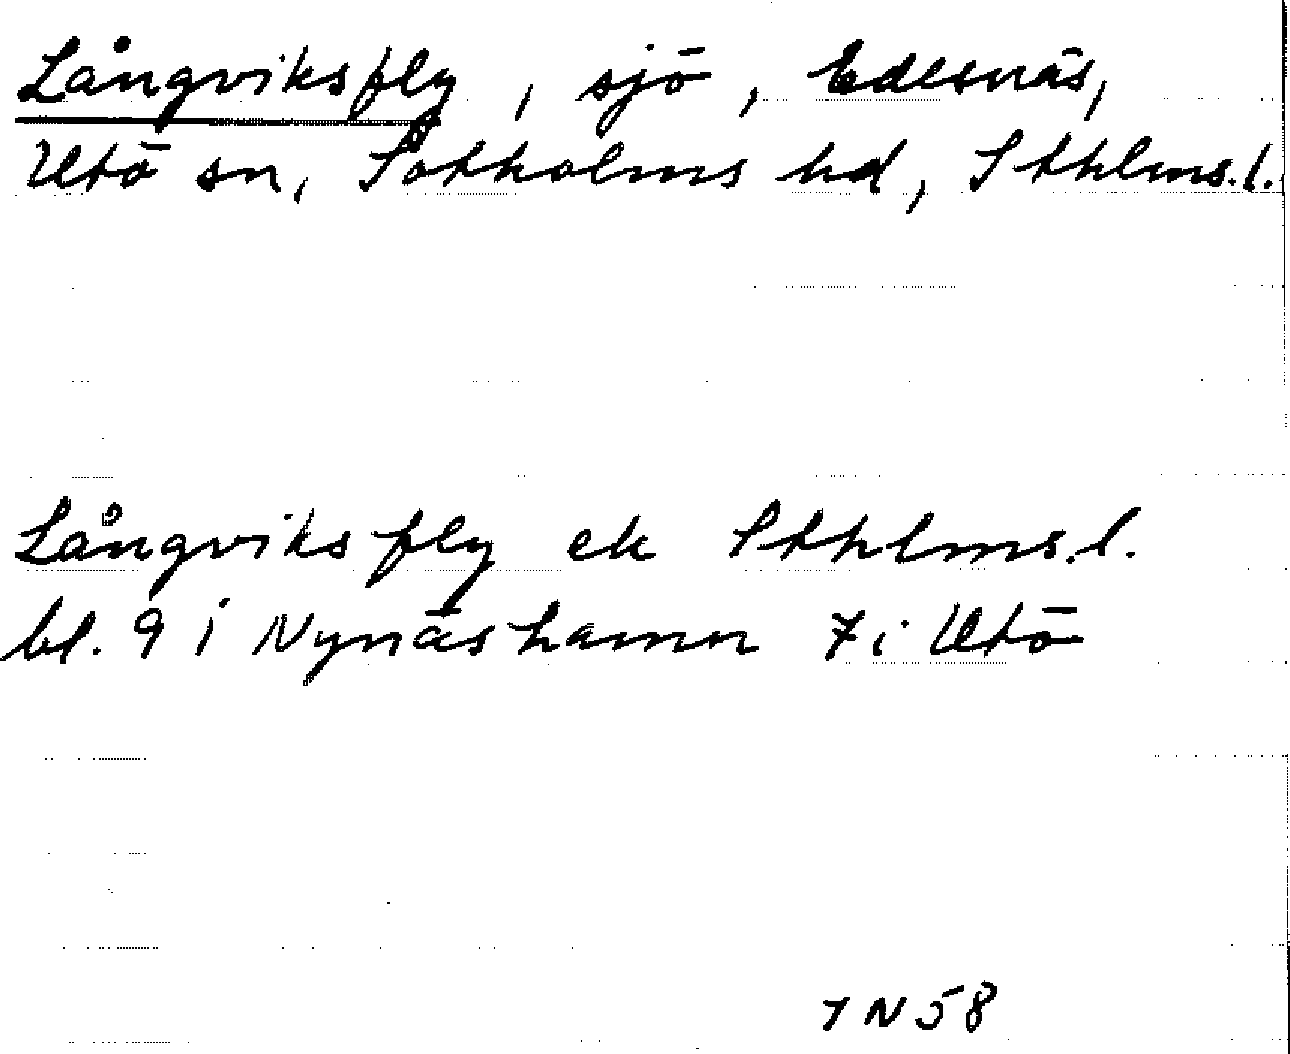 Långviksfly, sjö, Edesnäs,
Utö sn, Sotholms hd, Sthlms.l.
Långviksfly ek Sthlms.l.
bl. 9 i Nynäshamn 7 i Utö
7 N 58